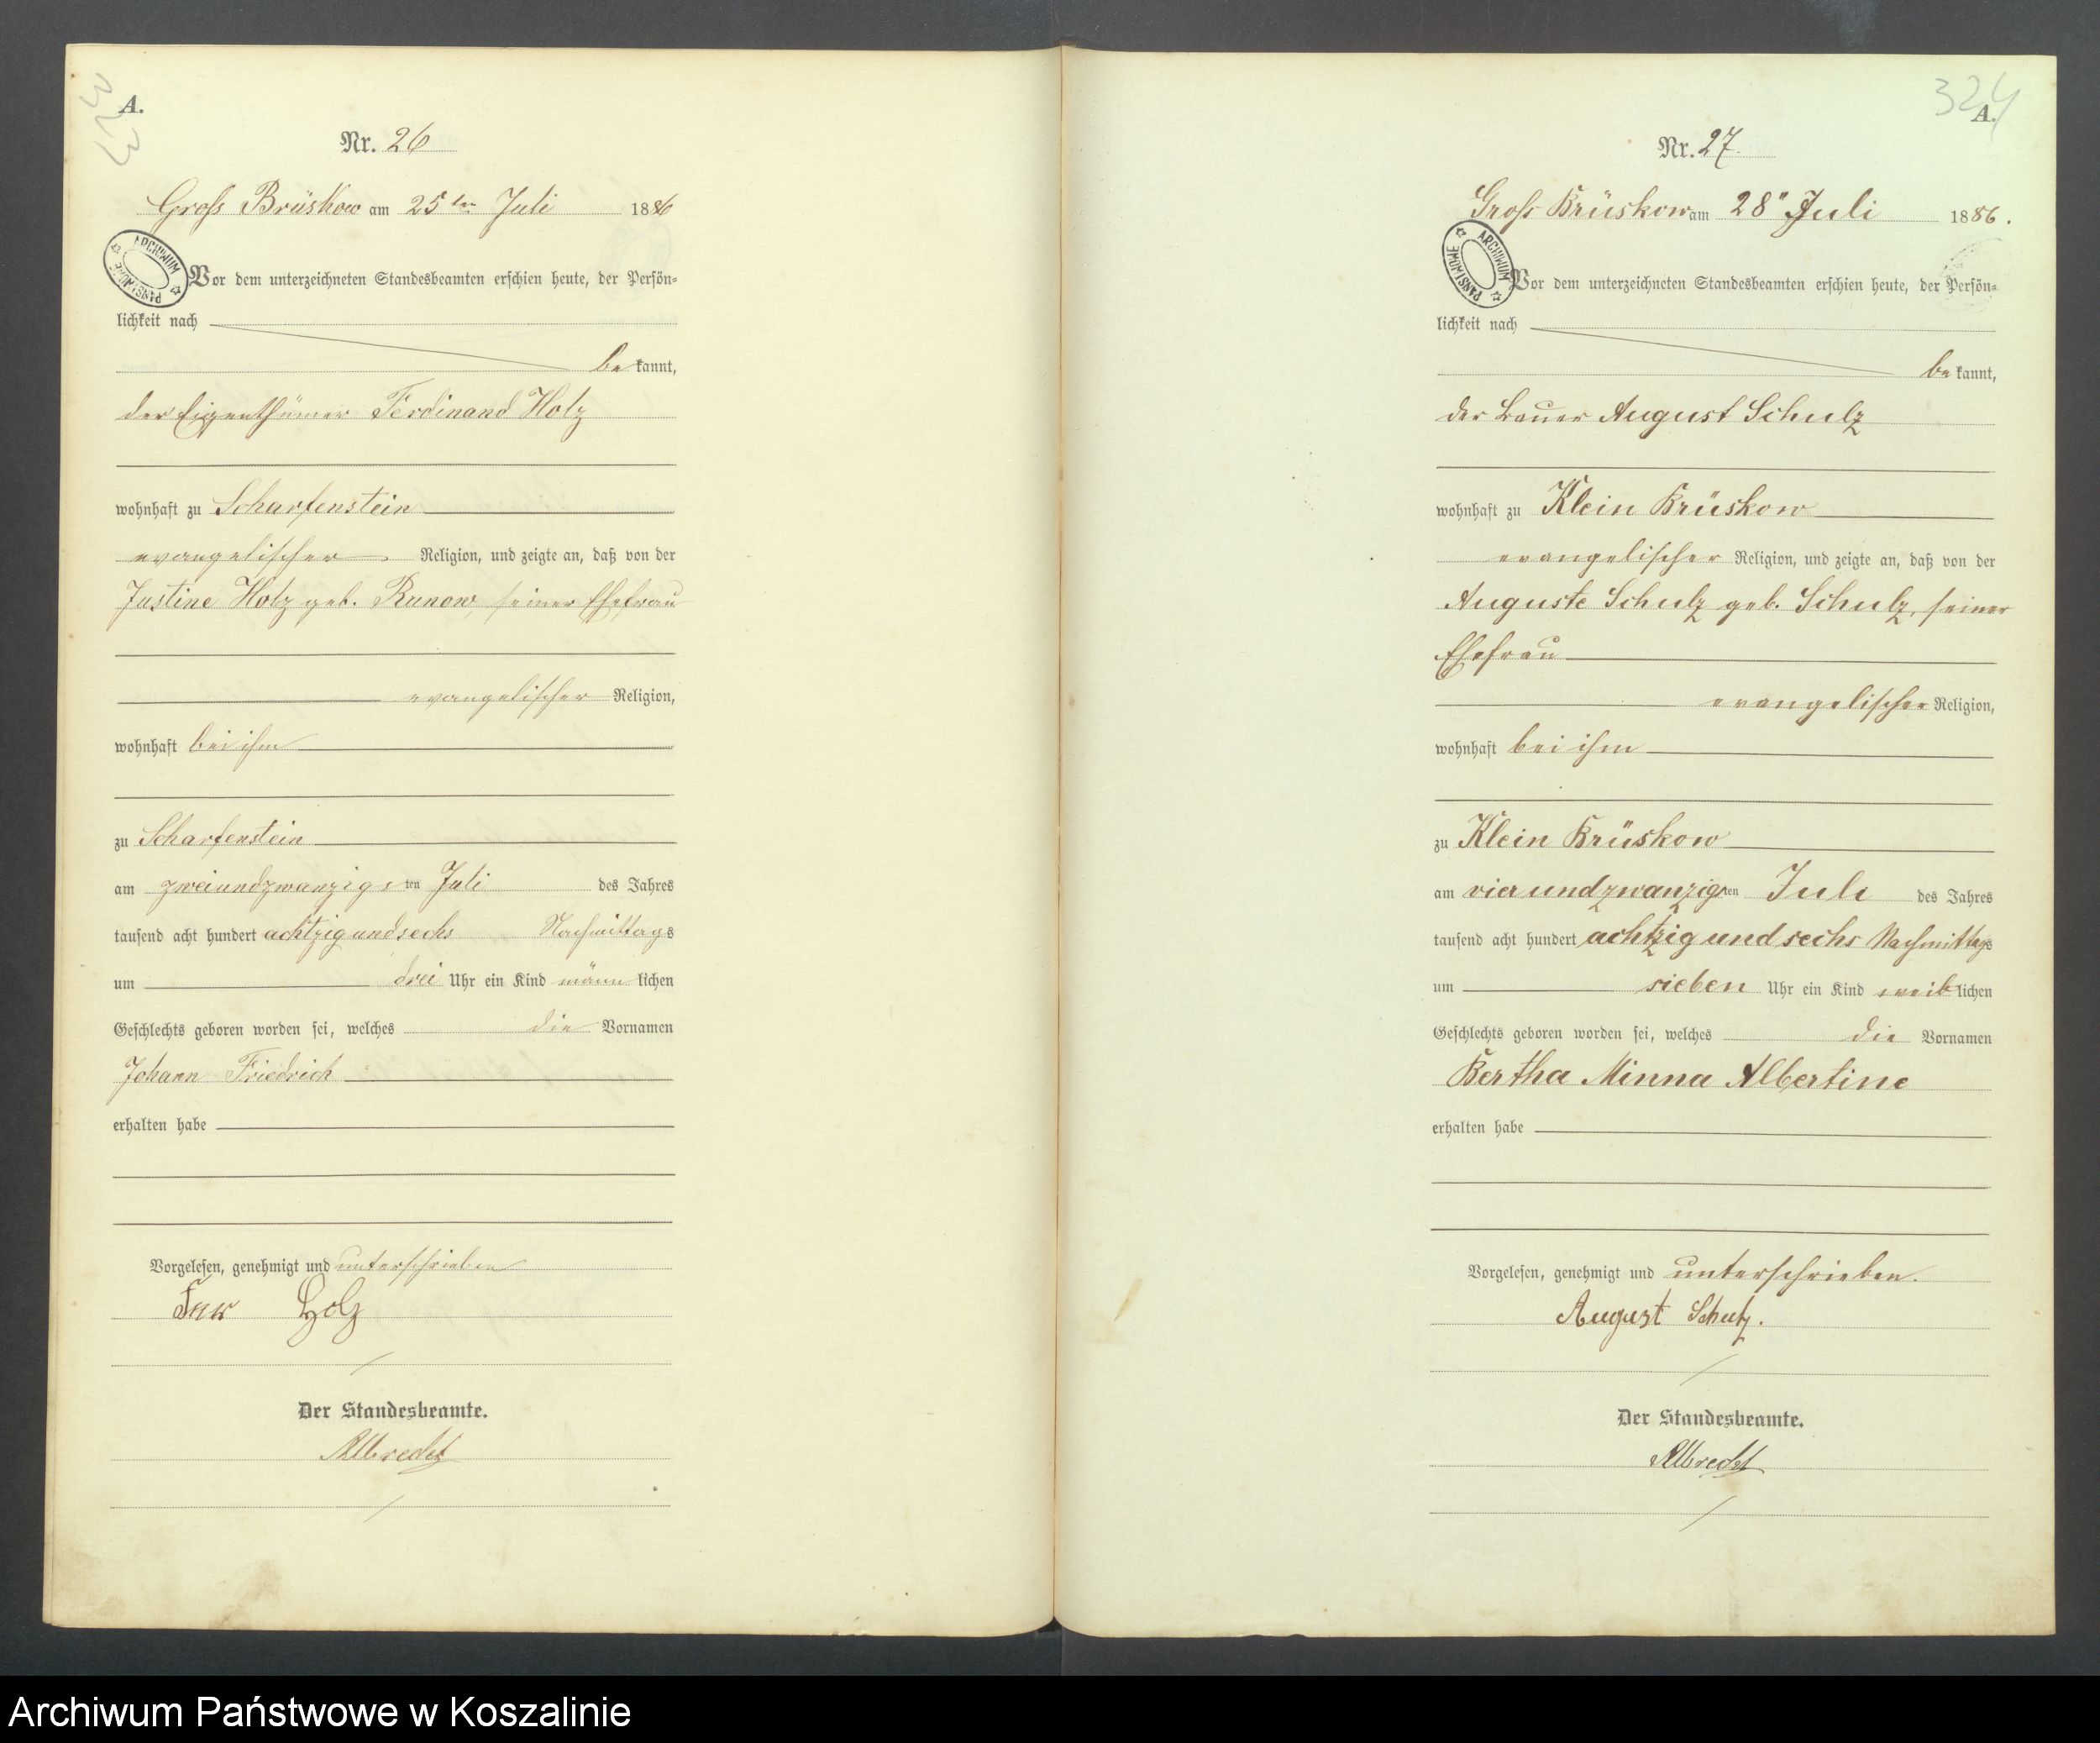 323
A.
Nr. 26
Gross Brüskow am 25ten Juli 1886
ARCHIWUM PAŃSTWOWE
Vor dem unterzeichneten Standesbeamten erschien heute, der Persön-
lichkeit nach
bekannt,
der Eigenthümer Ferdinand Holz
wohnhaft zu Scharfenstein
evangelischer Religion, und zeigte an, daß von der
Justine Holz geb. Runow, seiner Ehefrau
evangelischer Religion,
wohnhaft bei ihm
zu Scharfenstein
am zweiundzwanzigsten Juli des Jahres
tausend acht hundert achtzig und sechs Nachmittags
um drei Uhr ein Kind männlichen
Geschlechts geboren worden sei, welches die Vornamen
Johann Friedrich
erhalten habe
Vorgelesen, genehmigt und unterschrieben
Holz
Der Standesbeamte.
Albrecht
324
A.
Nr. 27.
Gross Brüskow am 28" Juli 1886.
ARCHIWUM PAŃSTWOWE
Vor dem unterzeichneten Standesbeamten erschien heute, der Persön-
lichkeit nach
bekannt,
der Bauer August Schulz
wohnhaft zu Klein Brüskow
evangelischer Religion, und zeigte an, daß von der
Auguste Schulz geb. Schulz, seiner
Ehefrau
evangelischer Religion,
wohnhaft bei ihm
zu Klein Brüskow
am vier und zwanzigsten Juli des Jahres
tausend acht hundert achtzig und sechs Nachmittags
um sieben Uhr ein Kind weiblichen
Geschlechts geboren worden sei, welches die Vornamen
Bertha Minna Albertine
erhalten habe
Vorgelesen, genehmigt und unterschrieben.
August Schulz.
Der Standesbeamte.
Albrecht
Archiwum Państwowe w Koszalinie